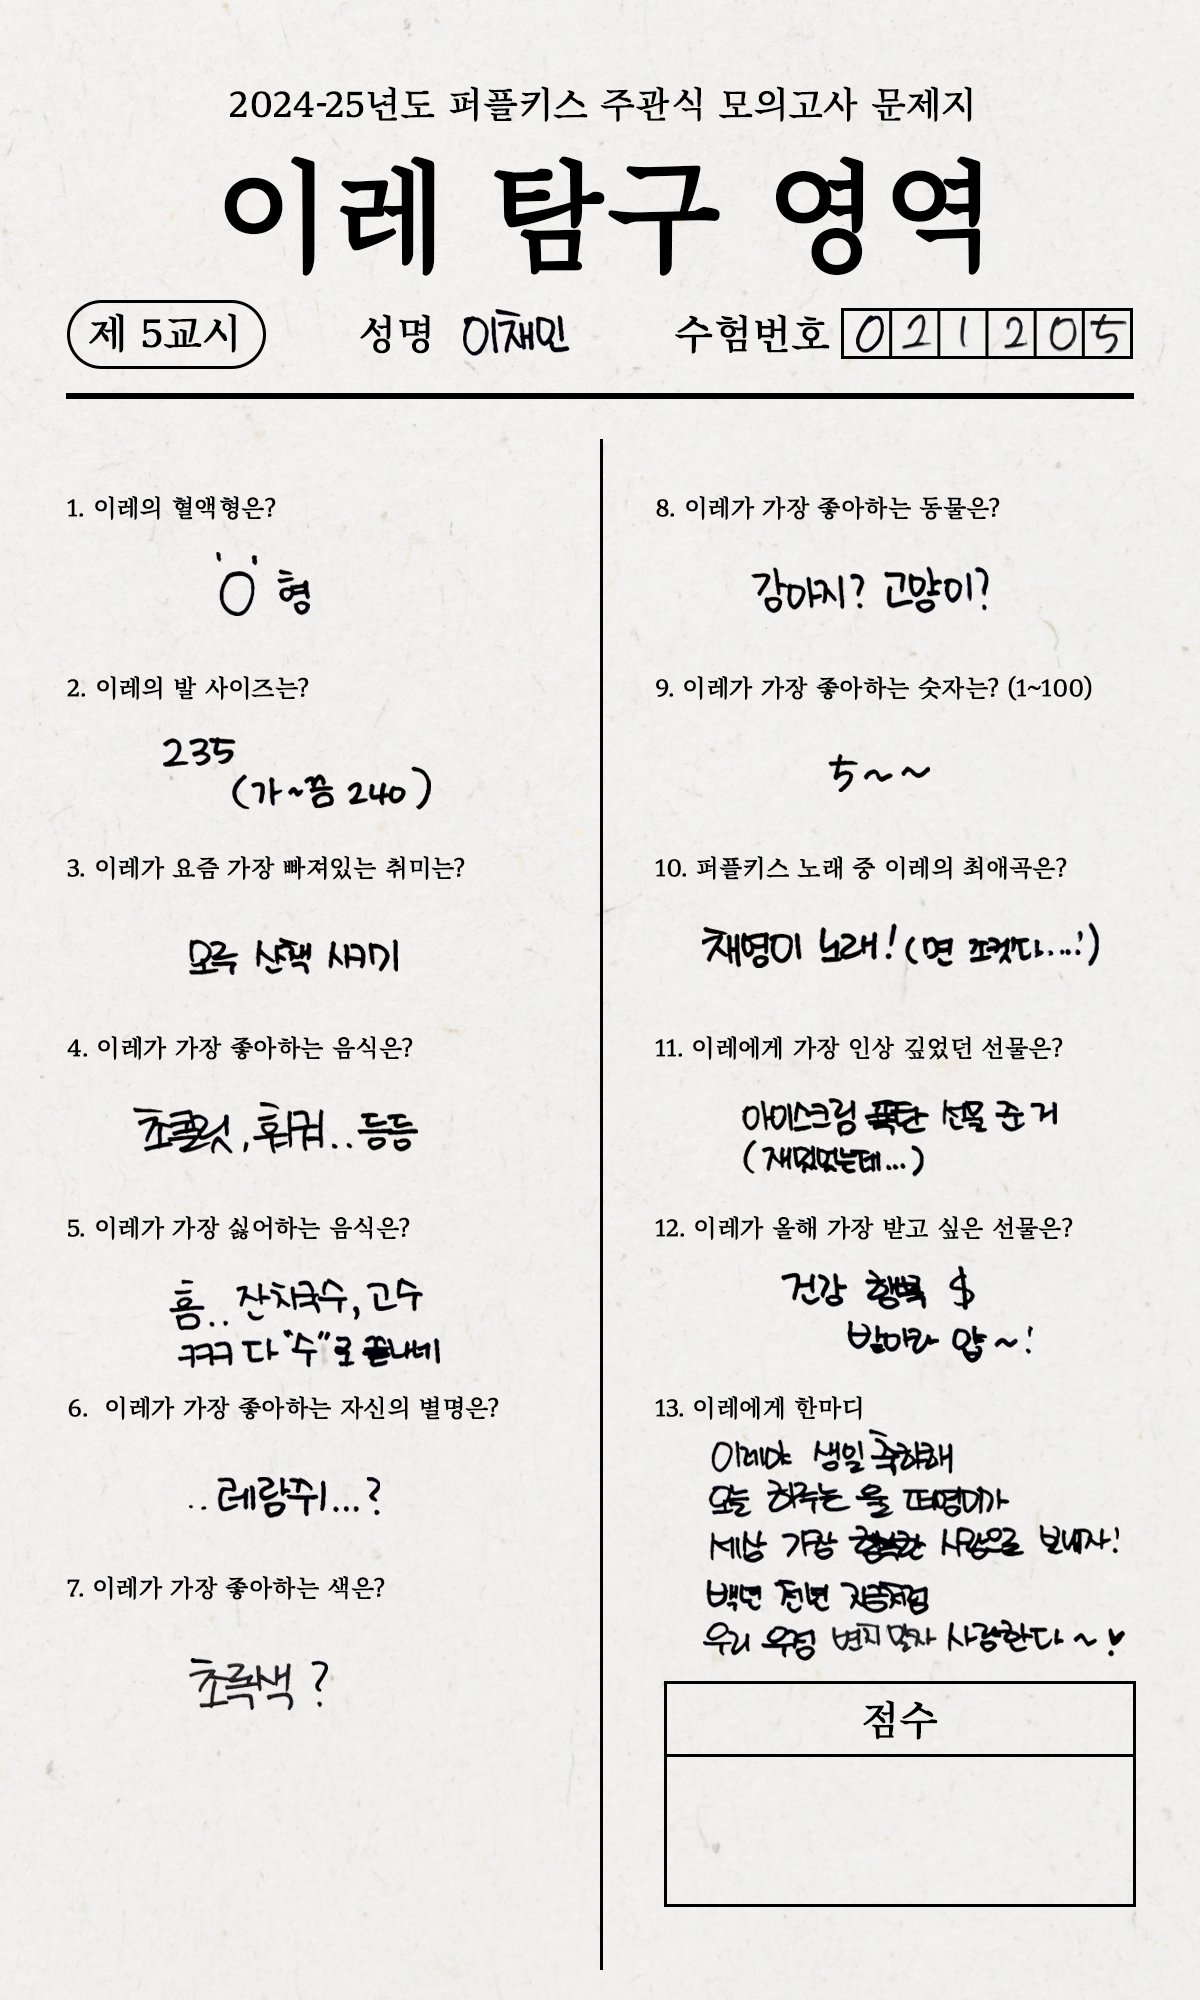 2024-25년도 퍼플키스 주관식 모의고사 문제지
이레 탐구 영역
제 5교시
성명 이채민
수험번호 021205
1. 이레의 혈액형은?
'O' 형
2. 이레의 발 사이즈는?
235
(가~끔 240)
3. 이레가 요즘 가장 빠져있는 취미는?
모루 산책 시키기
4. 이레가 가장 좋아하는 음식은?
초콜릿, 훠궈.. 등등
5. 이레가 가장 싫어하는 음식은?
흠.. 잔치국수, 고수
ㅋㅋㅋ 다 "수"로 끝나네
6. 이레가 가장 좋아하는 자신의 별명은?
..레람쥐...?
7. 이레가 가장 좋아하는 색은?
초록색 ?
8. 이레가 가장 좋아하는 동물은?
강아지? 고양이?
9. 이레가 가장 좋아하는 숫자는? (1~100)
5~~
10. 퍼플키스 노래 중 이레의 최애곡은?
채영이 노래! (면 조켓다....!)
11. 이레에게 가장 인상 깊었던 선물은?
아이스크림 폭탄 선물 준 거
(재밌었는데...)
12. 이레가 올해 가장 받고 싶은 선물은?
건강 행복 $
받아라 얍~!
13. 이레에게 한마디
이레야 생일 축하해
오늘 하루는 울 떠영이가
세상 가장 행복한 사람으로 보내자!
백년 천년 지금처럼
우리 우정 변치 말자 사랑한다~♥
점수